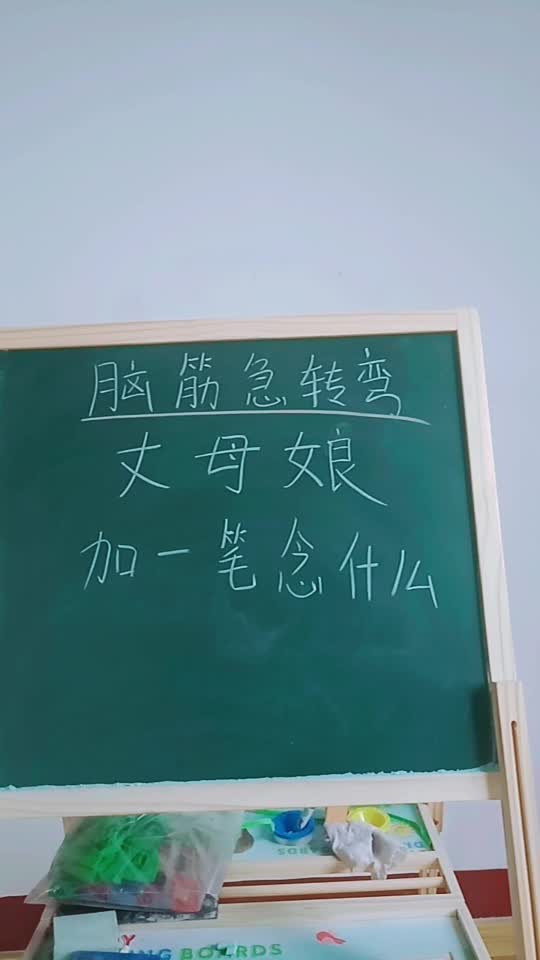 脑筋急转弯
丈母娘
加一笔念什么
BOARDS